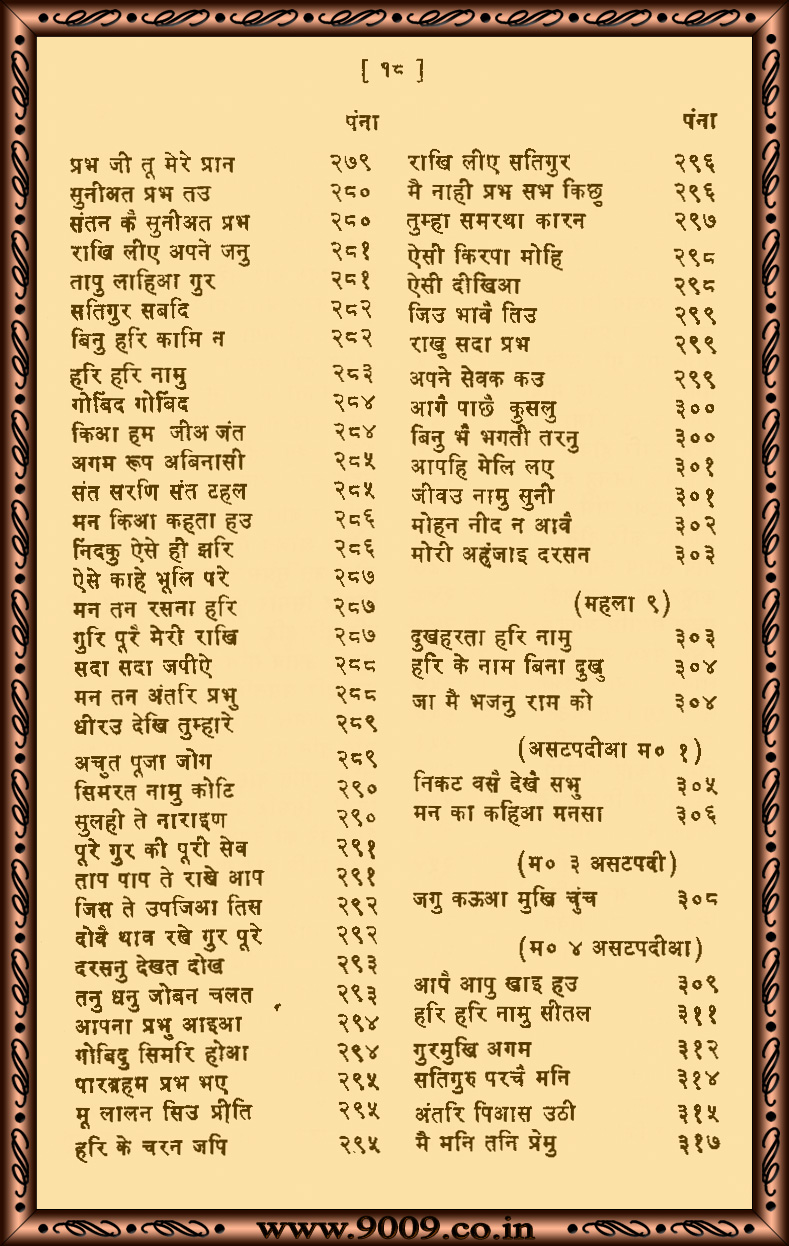 [ १८ ]
पंना
प्रभ जी तू मेरे प्रान २७९
सुनीअत प्रभ तउ २८०
संतन कै सुनीअत प्रभ २८०
राखि लीए अपने जनु २८१
तापु लाहिआ गुर २८१
सतिगुर सबदि २८२
बिनु हरि कामि न २८२
हरि हरि नामु २८३
गोबिंद गोबिंद २८४
किआ हम जीअ जंत २८४
अगम रूप अबिनासी २८५
संत सरणि संत टहल २८५
मन किआ कहता हउ २८६
निंदकु ऐसे ही झरि २८६
ऐसे काहे भूलि परे २८७
मन तन रसना हरि २८७
गुरि पूरै मेरी राखि २८७
सदा सदा जपीऐ २८८
मन तन अंतरि प्रभु २८८
धीरउ देखि तुम्हारे २८९
अचुत पूजा जोग २८९
सिमरत नामु कोटि २९०
सुलही ते नाराइण २९०
पूरे गुर की पूरी सेव २९१
ताप पाप ते राखे आप २९१
जिस ते उपजिआ तिस २९२
दोवै थाव रखे गुर पूरे २९२
दरसनु देखत दोख २९३
तनु धनु जोबन चलत २९३
आपना प्रभु आइआ २९४
गोबिदु सिमरि होआ २९४
पारब्रहम प्रभ भए २९५
मू लालन सिउ प्रीति २९५
हरि के चरन जपि २९५
पंना
राखि लीए सतिगुर २९६
मै नाही प्रभ सभ किछु २९६
तुम्हा समरथा कारन २९७
ऐसी किरपा मोहि २९८
ऐसी दीखिआ २९८
जिउ भावै तिउ २९९
राखु सदा प्रभ २९९
अपने सेवक कउ २९९
आगै पाछै कुसलु ३००
बिनु भै भगती तरनु ३००
आपहि मेलि लए ३०१
जीवउ नामु सुनी ३०१
मोहन नीद न आवै ३०२
मोरी अहुंजाइ दरसन ३०३
(महला ९)
दुखहरता हरि नामु ३०३
हरि के नाम बिना दुखु ३०४
जा मै भजनु राम को ३०४
(असटपदीआ म० १)
निकट वसै देखै सभु ३०५
मन का कहिआ मनसा ३०६
(म० ३ असटपदी)
जगु कऊआ मुखि चुंच ३०८
(म० ४ असटपदीआ)
आपै आपु खाइ हउ ३०९
हरि हरि नामु सीतल ३११
गुरमुखि अगम ३१२
सतिगुरु परचै मनि ३१४
अंतरि पिआस उठी ३१५
मै मनि तनि प्रेमु ३१७
www.9009.co.in